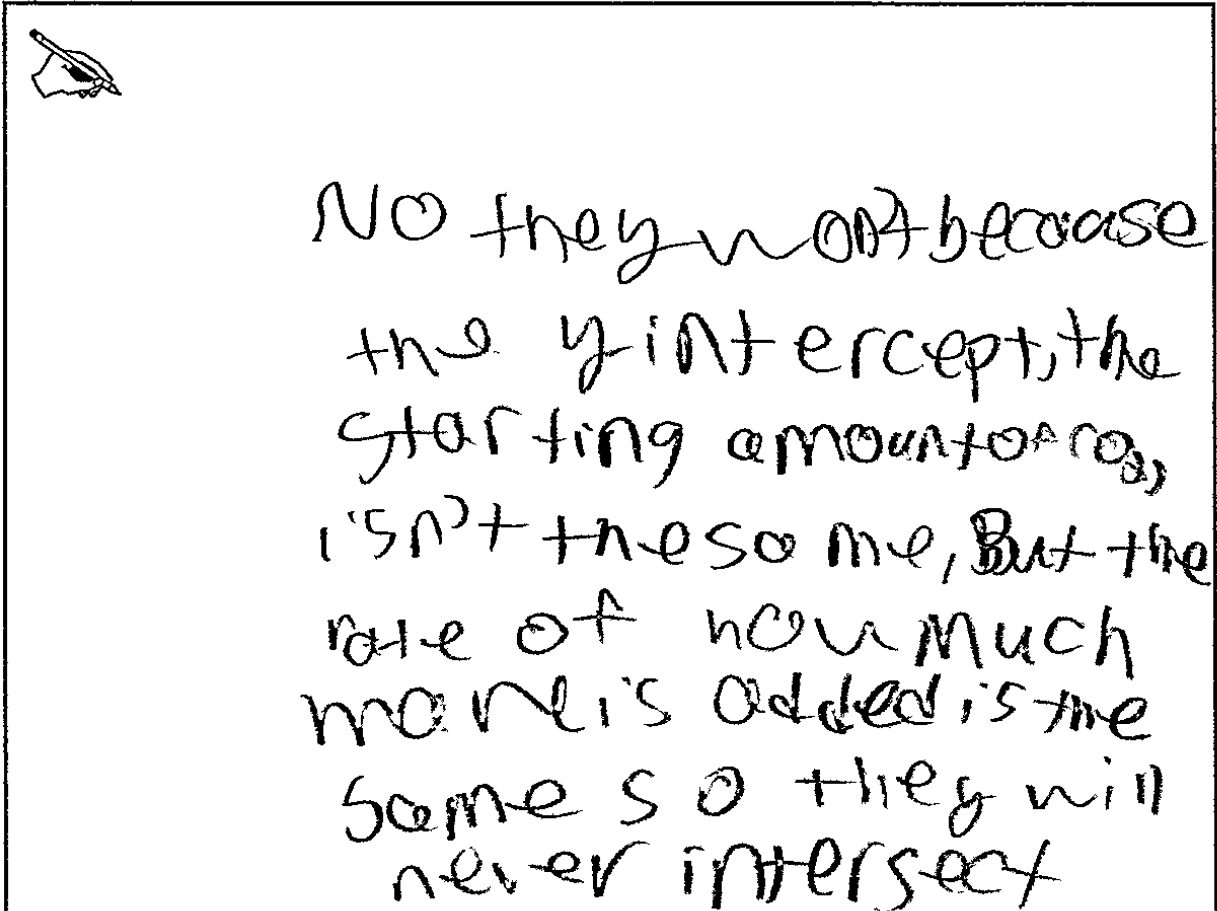 No they won't because
the y intercept, the
starting amount of co2,
isn't the same, But the
rate of how much
more is added is the
same so they will
never intersect